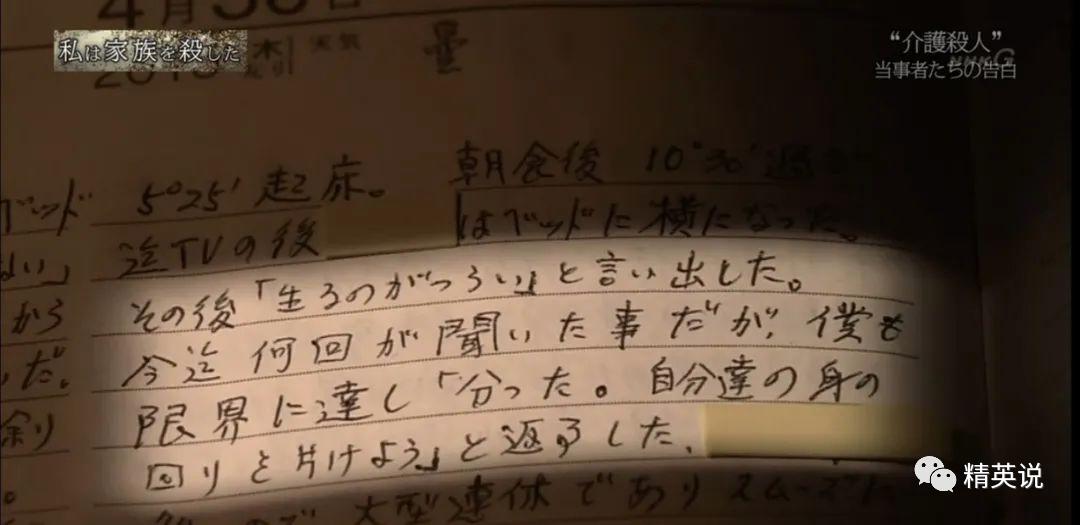 4月30日
私は家族を殺した
木
天気
曇
"介護殺人"
当事者たちの告白
NHK G
ベッド
5°25'起床。 朝食後 10°30'過ぎ
ない」
迄TVの後
はベッドに横になった。
から
その後「生るのがつらい」と言い出した。
いだ。
今迄何回か聞いた事だが、僕も
余り
限界に達し「分った。自分達の身の
回りを片けよう」と返事した、
大型連休でありスムーズに
精英说